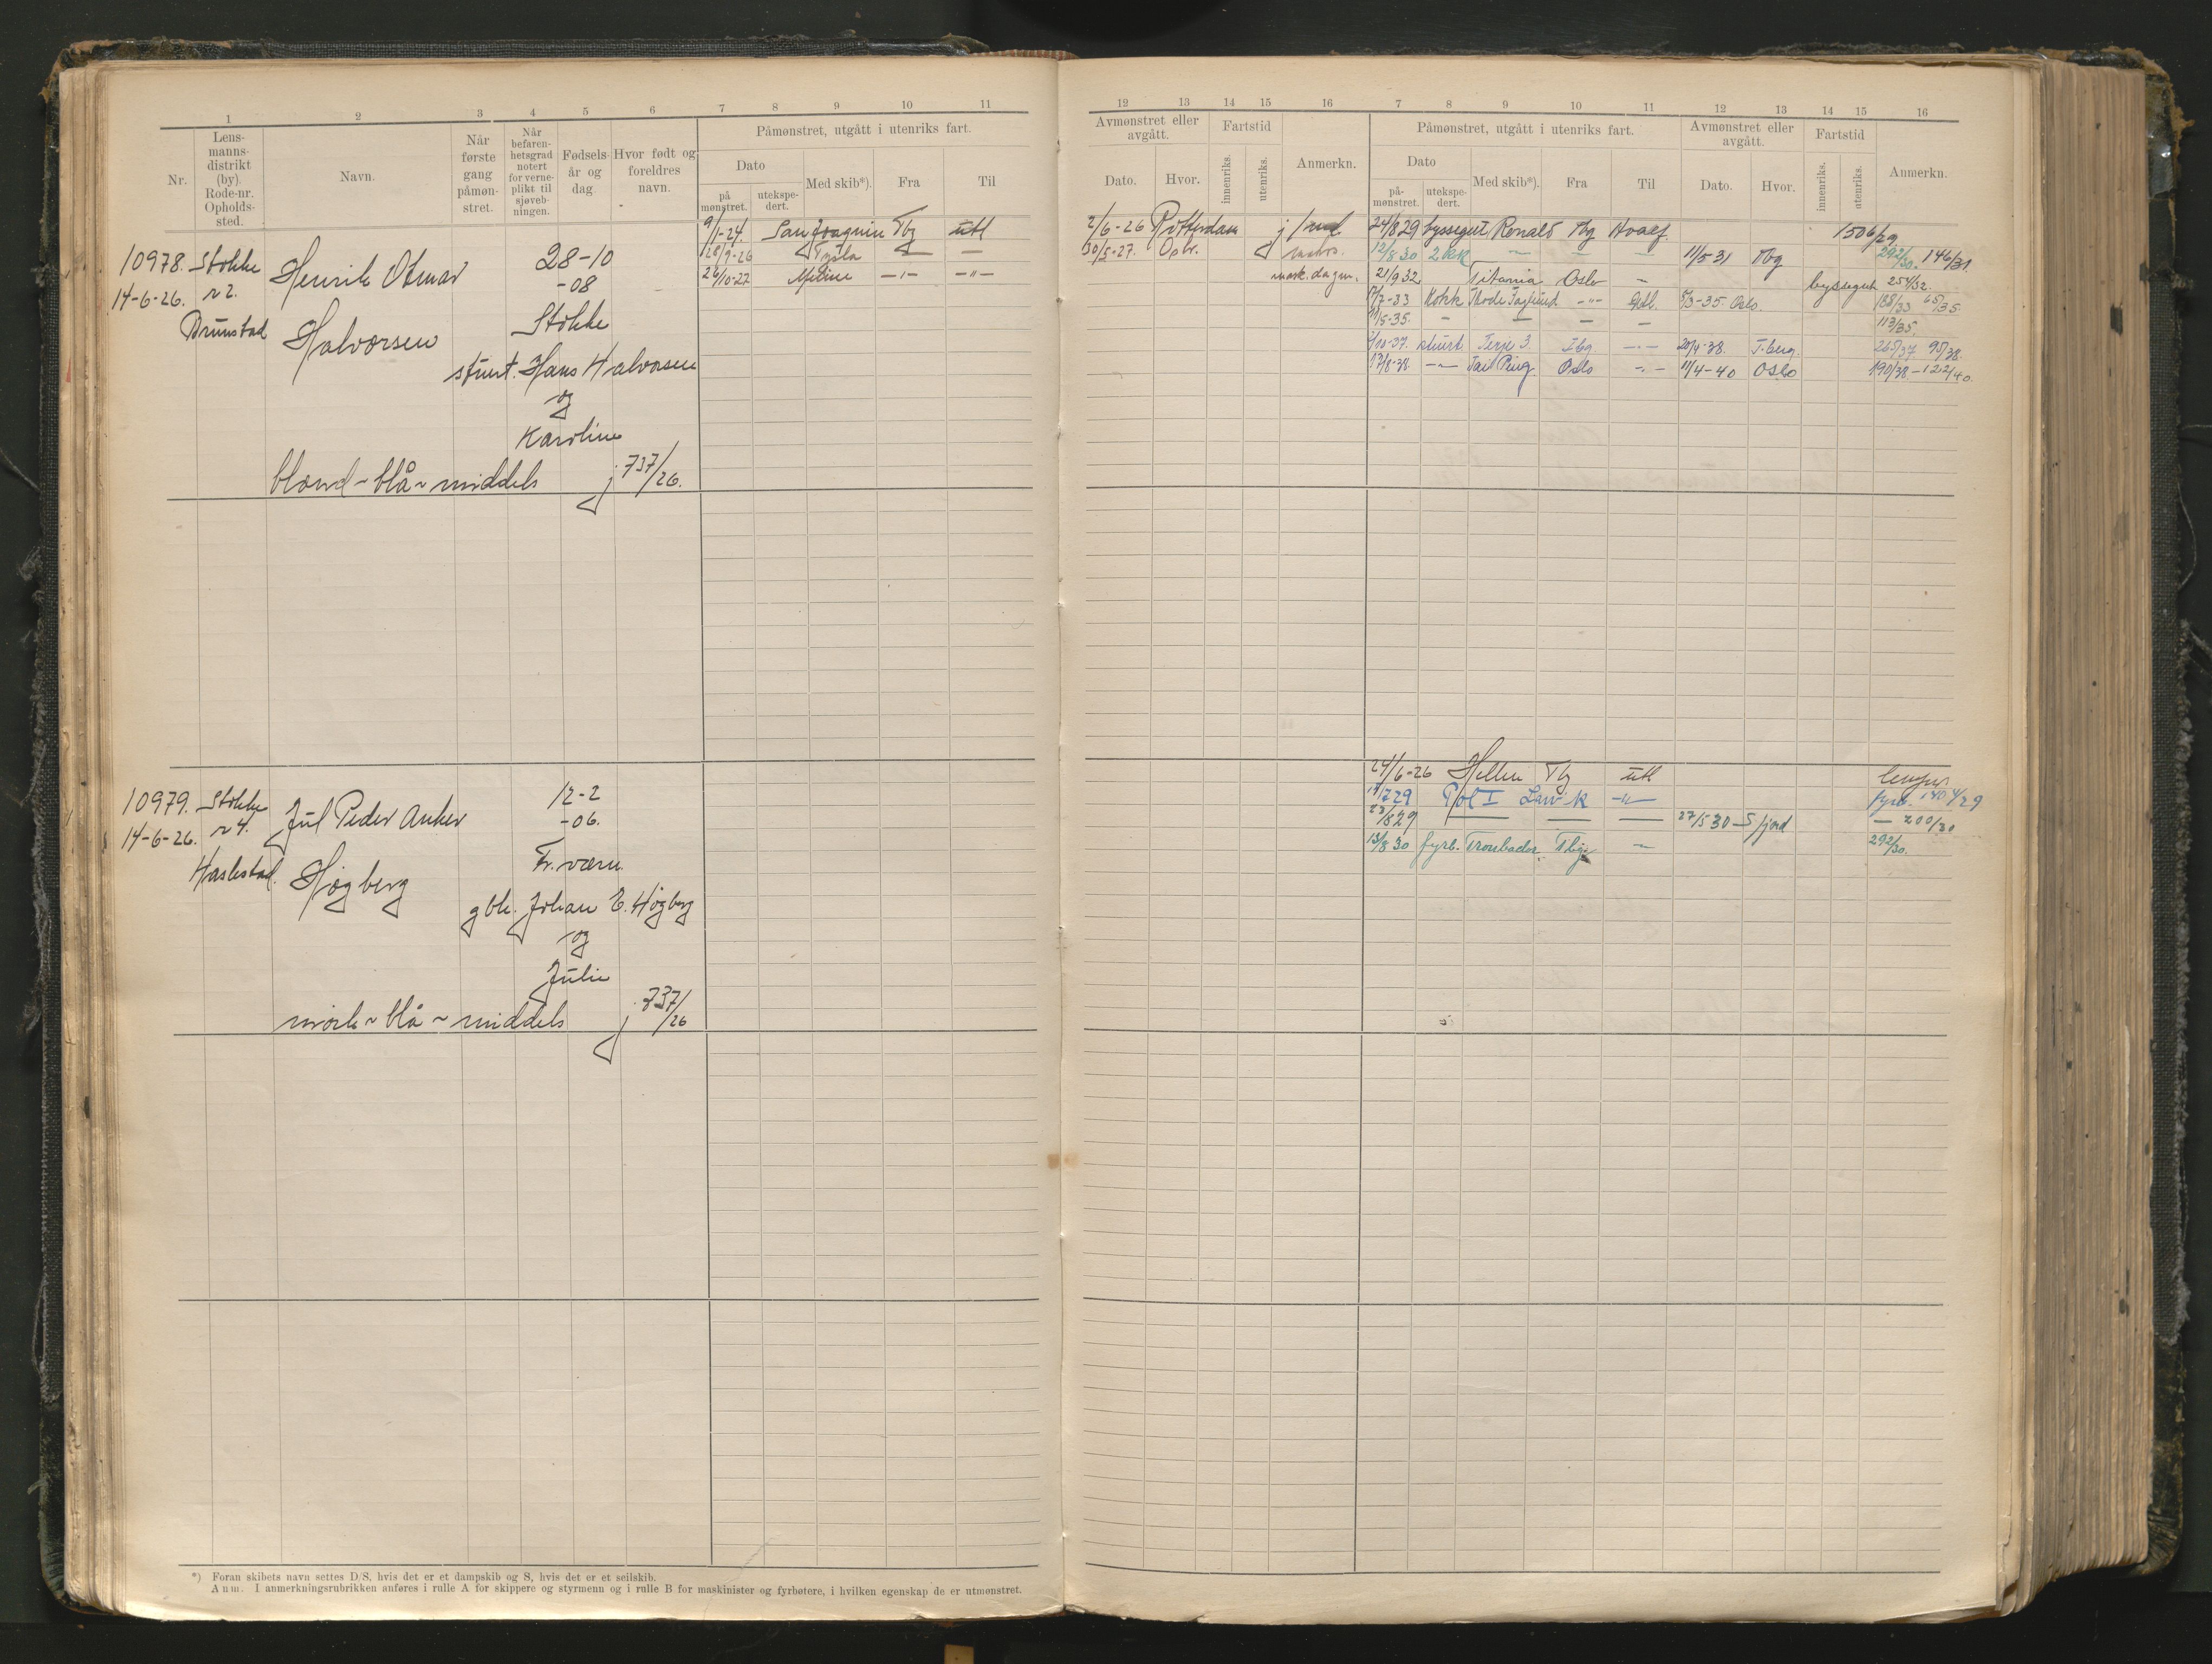 1 2 3 4 5 6 7 8 9 10 11
Nr.
Lens-
manns-
distrikt
(by).
Rode-nr.
Opholds-
sted.
Navn.
Når
første
gang
påmøn-
stret.
Når
befaren-
hetsgrad
notert
for verne-
plikt til
sjøveb-
ningen.
Fødsels-
år og
dag
Hvor født og
foreldres
navn.
Påmønstret, utgått i utenriks fart.
Dato
på
mønstret.
utekspe-
dert.
Med skib*).
Fra
Til
9/1-24. San Joaquin Tbg utl
28/9-26 Tysla — —
26/10-27 —"— —"—
10978. Stokke
14-6-26. r 2.
Brunstad
Henrik Otmar
Halvorsen
28-10
-08
Stokke
stuert. Hans Halvorsen
og
Karoline
blond ~ blå ~ middels j 737/26.
10979. Stokke
14-6-26. r 4.
Haslestad.
Jul Peder Anker
Høgberg
12-2
-06.
Fr.værn.
gbr. Johan E. Høgberg
og
Julie
mørk ~ blå ~ middels j 737/26
*) Foran skibets navn settes D/S, hvis det er et dampskib og S, hvis det er et seilskib.
Anm. I anmerkningsrubrikken anføres i rulle A for skippere og styrmenn og i rulle B for maskinister og fyrbøtere, i hvilken egenskap de er utmønstret.
12 13 14 15 16 7 8 9 10 11 12 13 14 15 16
Avmønstret eller
avgått.
Dato.
Hvor.
Fartstid
innenriks.
utenriks.
Anmerkn.
Påmønstret, utgått i utenriks fart.
Dato
på-
mønstret.
utekspe-
dert.
Med skib*).
Fra
Til
Avmønstret eller
avgått.
Dato.
Hvor.
Fartstid
innenriks.
utenriks.
Anmerkn.
2/6-26 Rotterdam j
30/5-27.
24/8 29 byssegut Ronald Tbg Hvalf.
12/8 30 2 kk — — — 11/5-31 Tbg 292/30. 146/31
21/9 32 Titania Oslo — byssegut 254/32.
17/7-33 Kokk Thode Faglund —"— utl. 5/3-35 Oslo. 188/33 65/35.
11/5-35. — — — — 113/35.
/10-37. stuert. Terje 3. Tbg —"— 20/4-38. T.berg. 265/37 95/38.
17/8-38. —"— Tai Ping. Oslo —"— 11/4-40 Oslo 190/38 - 122/40.
24/6-26 Hellen Tbg utl
17/7 29 Pol I Larvik —"— fyrb.
23/8 29 — — — 27/5 30 Sfjord — 200/30
13/8 30 fyrb. Troubador Tbg — 292/30.